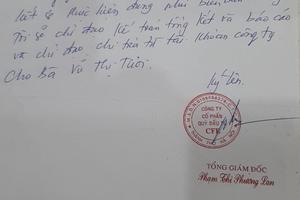 kết & thực hiện đúng như biên bản
Trị & chỉ đạo kế toán trưởng kết và báo cáo
và chỉ đạo chi trả từ tài khoản công ty
Cho bà Vũ Thị Tươi.
Ký tên
CÔNG TY
CỔ PHẦN
QUỸ ĐẦU
CFE
TỔNG GIÁM ĐỐC
Phạm Thị Phương Lan